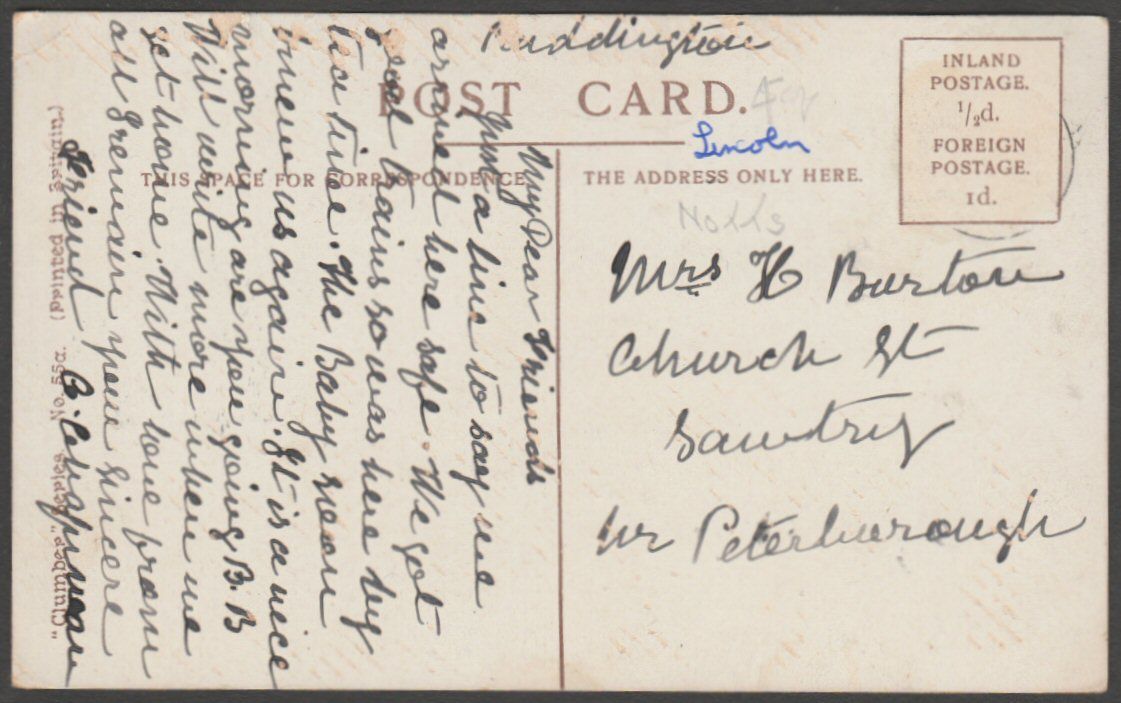 Ruddington
POST CARD.
INLAND
POSTAGE.
½d.
FOREIGN
POSTAGE.
1d.
Lincoln
THIS SPACE FOR CORRESPONDENCE.
THE ADDRESS ONLY HERE.
Notts
My Dear Friends
Just a line to say we
arrived here safe. We got
good trains so was here by
tea time. The Baby soon
knew us again. It is a nice
morning are you going B. B
Will write more when we
get home. With love from
all Remain your Sincere
Friend C. Chapman
Mrs H Burton
Church St
Sawtry
Nr Peterborough
"Clumber" Series No. 55a. (Printed in Britain.)